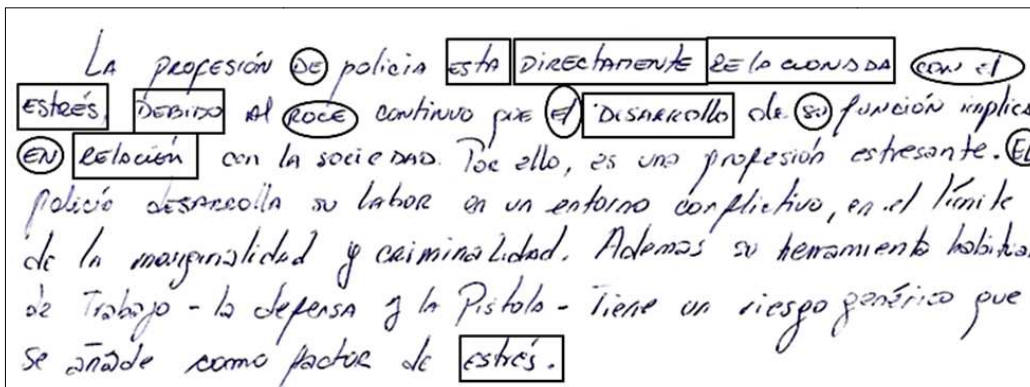 LA PROFESIÓN DE policia ESTA DIRECTAMENTE RELACIONADA CON El
EStRÉS, DEBIDO Al ROCE CONTINUO que El DISARROllo de su función implica
EN RELACIÓN con LA sociedad. Por ello, es una profesión estresante. El
policia desarrolla su labor en un entorno conflictivo, en el límite
de la marginalidad y criminalidad. Ademas su herramienta habitual
de Trabajo - la defensa y la Pistola - Tiene un riesgo genérico que
se añade como factor de estrés.